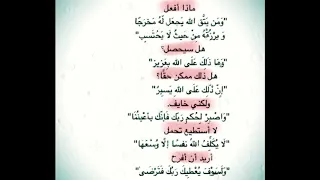 ماذا أفعل
"وَمَن يَتَّقِ الله يَجعَل لَهُ مَخرَجًا
وَ يَرزُقهُ مِنْ حَيثُ لَا يَحْتَسِبِ"
هل سيحصل؟
"وَمَا ذَلِكَ عَلَى الله بِعَزِيزٍ"
هل ذلك ممكن حقًا؟
"إِنّ ذَلِكَ عَلَى الله يَسِيرُ"
ولكني خايف.
"وَاصْبِرْ لِحُكمِ رَبِّكَ فَإِنَّكَ بِأعيُنْنَا"
لا أستطيع تحمل
"لَا يُكَلِّفُ اللهُ نَفسًا إِلَّا وُسْعَهَا"
أريد أن أفرح
"وَلَسَوْفَ يُعْطِيكَ رَبُّكَ فَتَرْضَى"